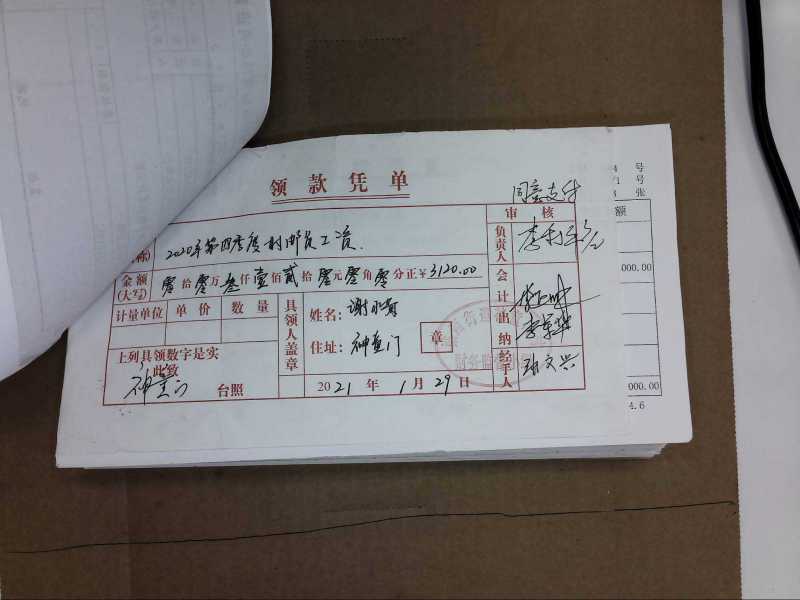 领款凭单
同意支付
2020年第四季度村邮员工资.
审核
负责人
金额(大写) 零拾零万叁仟壹佰贰拾零元零角零分正¥3120.00
计量单位 单价 数量
具领人盖章
姓名:谢
住址:神童门
章
会计
出纳
李军华
经手人
上列具领数字是实
此致
神童门 台照
2021年1月29日
财务监
号
号
张
额
000.00
000.00
4.6